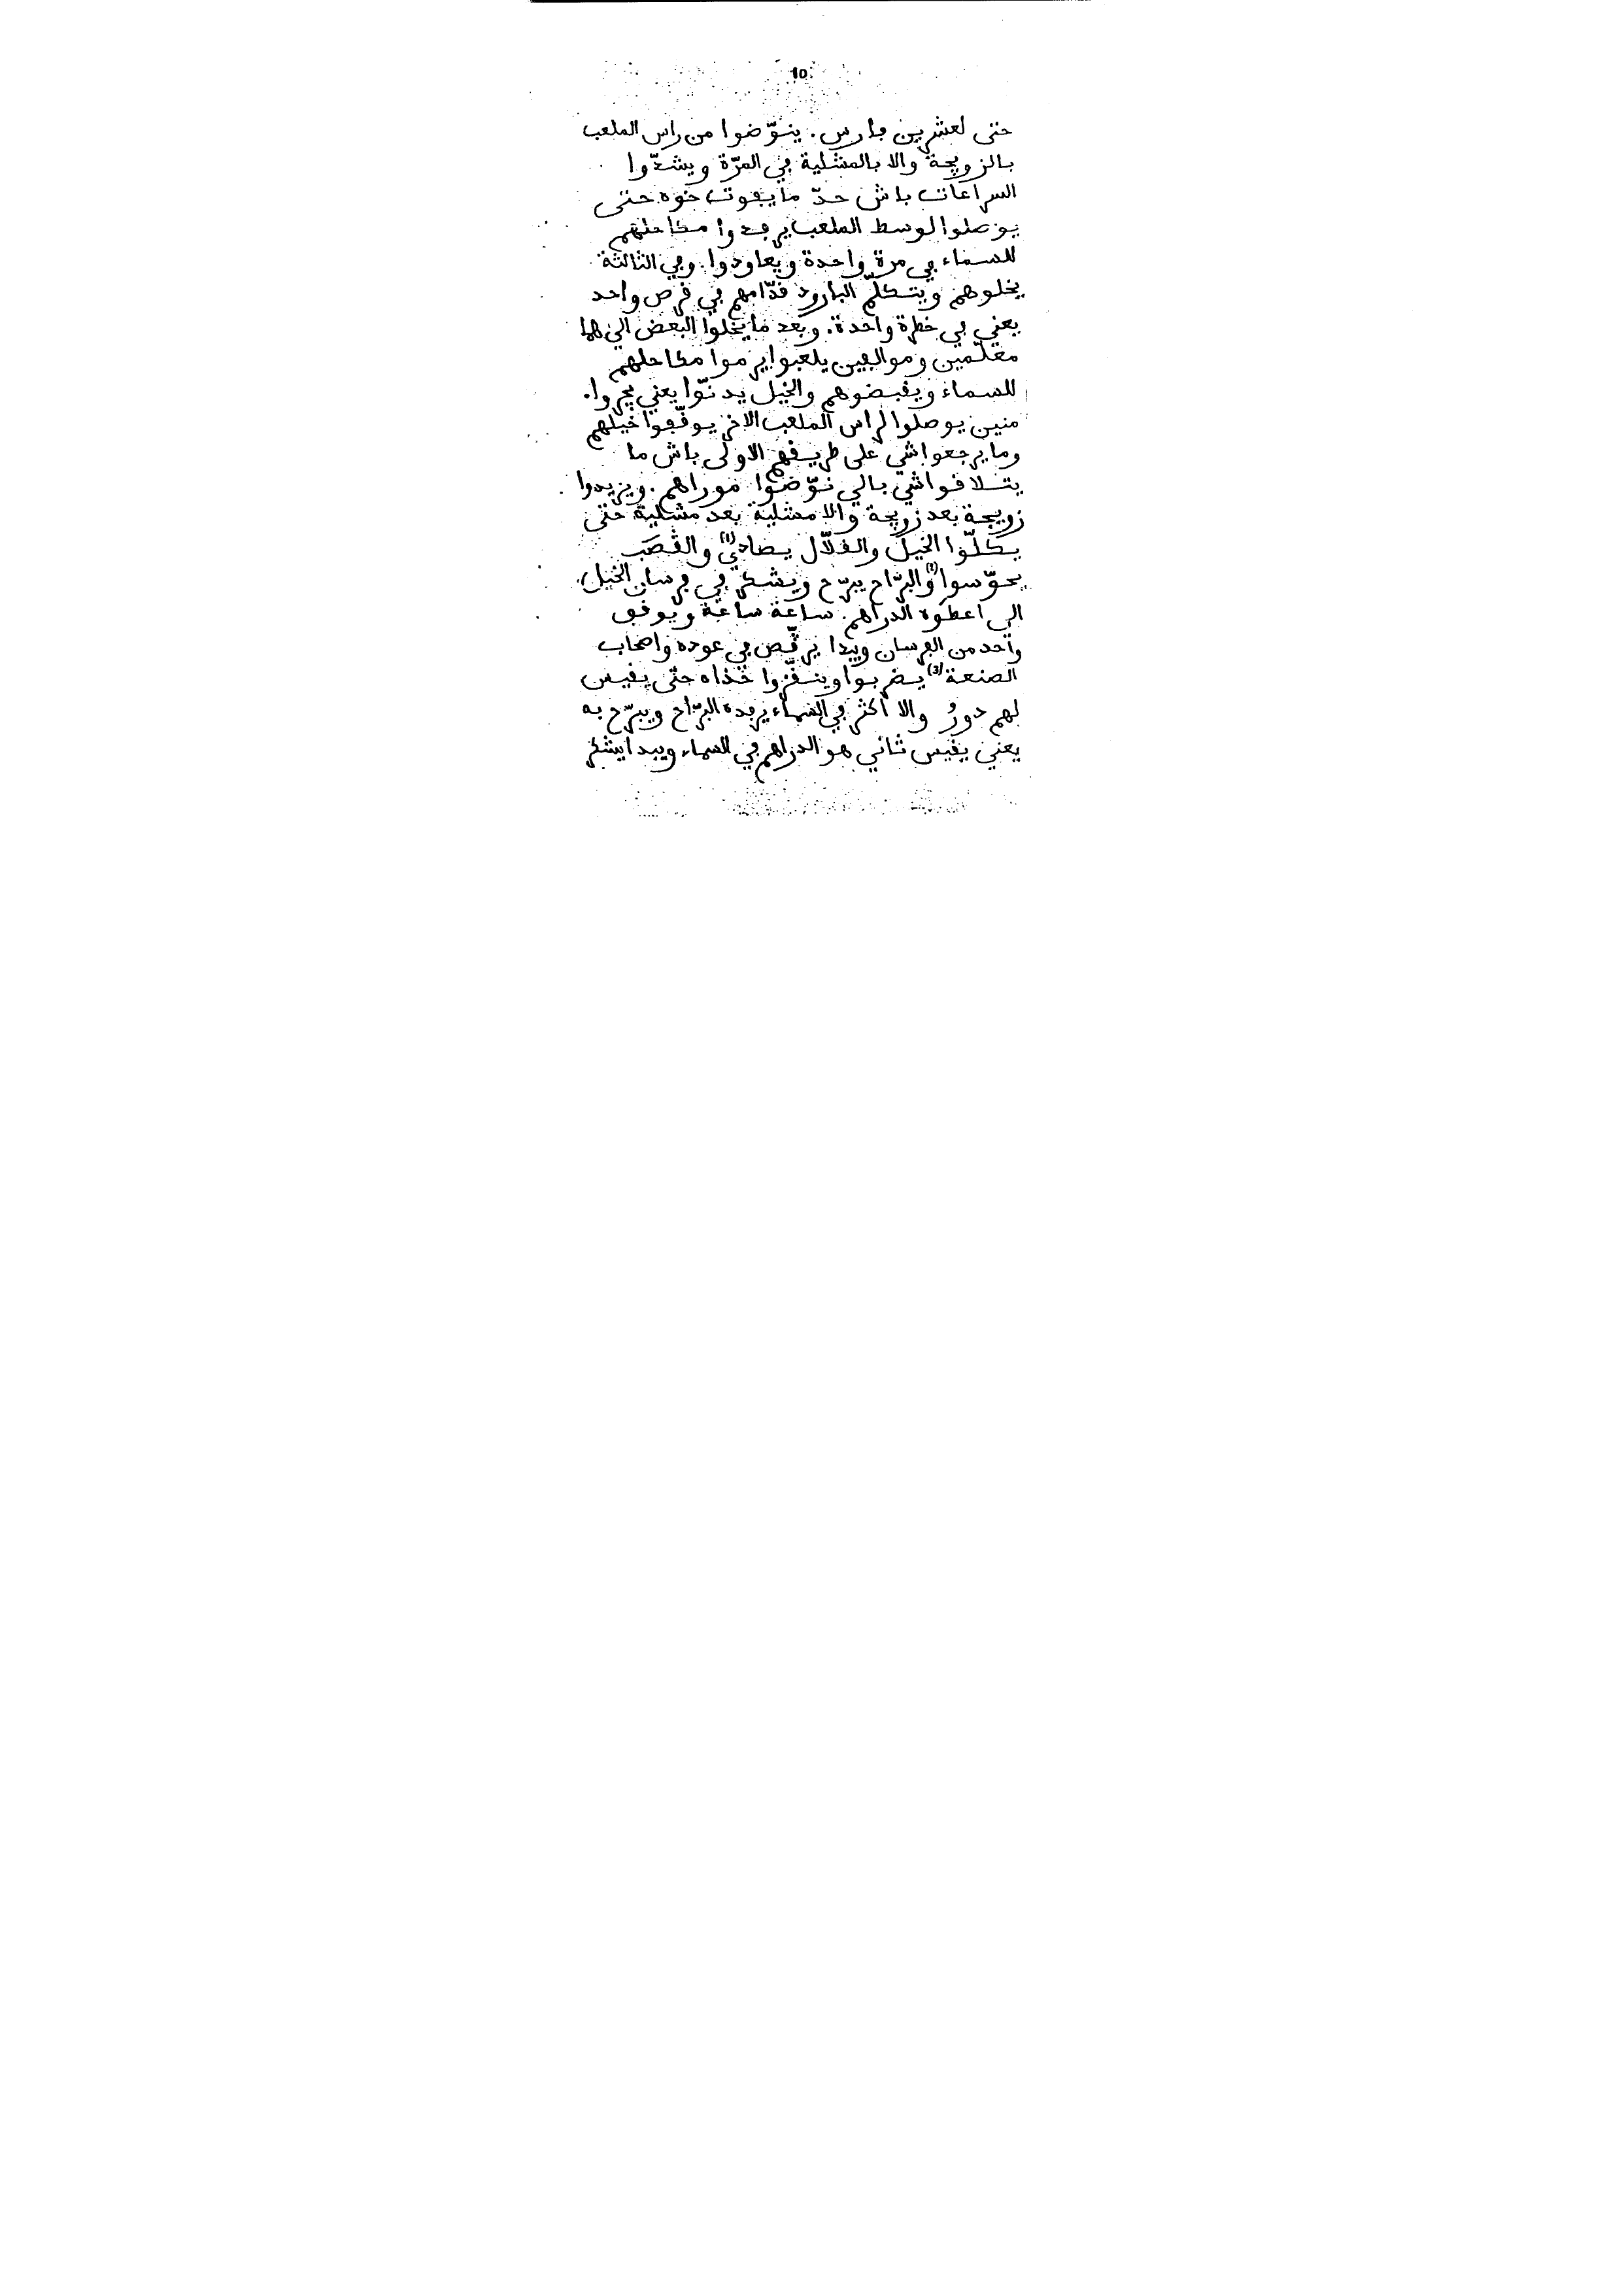 10
حتى لعشرين ڢارس. ينوّضوا من راس الملعب
بالزويجة والا بالمشلية ڢي المرّة ويشدّوا
السراعات باش حدّ ما يڢوت خوه حتى
يوصلوا لوسط الملعب يرڢدوا مكاحلهم
للسماء ڢي مرة واحدة ويعاودوا. وڢي الثالثة
يخلوهم ويتكلّم البارود فدّامهم ڢي فرص واحد
يعني ڢي خطرة واحدة. وبعد ما يخلوا البعض الي هما
معلّمين وموالڢين يلعبوا يرموا مكاحلهم
للسماء ويفبضوهم والخيل يدنّوا يعني يجروا.
منين يوصلوا لراس الملعب الاخر يوفّڢوا خيلهم
وما يرجعواشي على طريفهم الاولى باش ما
يتلافواشي بالي نوّضوا موراهم. ويزيدوا
زويجة بعد زويجة والا مشلية بعد مشلية حتى
يكلّوا الخيل والڨلّال يصادي(1) والڨصب
يحوّسوا(2) والبرّاح يبرّح ويشكر ڢي ڢرسان الخيل
الي اعطوه الدراهم. ساعة ساعة ويوفڢ
واحد من الڢرسان ويبدا يرفّص ڢي عوده واصحاب
الصنعة(3) يضربوا وينفّزوا حذاه حتى يفيس
لهم دورُ والا اكثر ڢي السماء يرڢده البرّاح ويبرّح به
يعني يفيس ثاني هو الدراهم ڢي السماء ويبدا يشكر